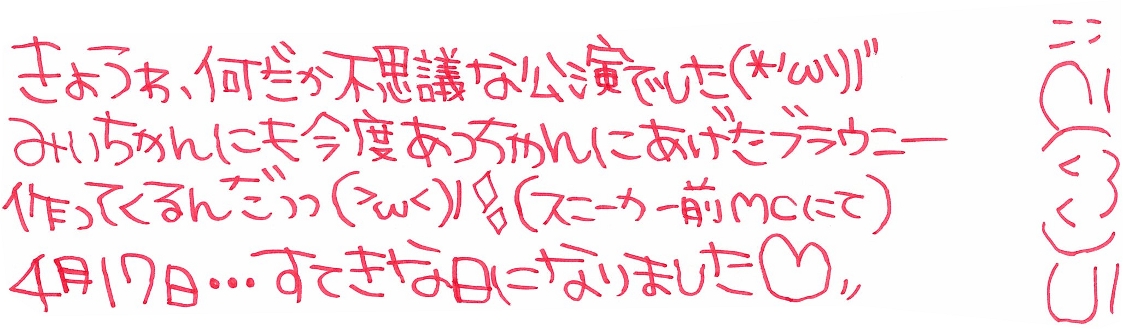 きょうわ、何だか不思議な公演でした(*'ω'))"
みいちゃんにも今度あっちゃんにあげたブラウニー
作ってくるんだっっ(>ω<)ﾉ!(スニーカー前MCにて)
4月17日…すてきな日になりました♡〃